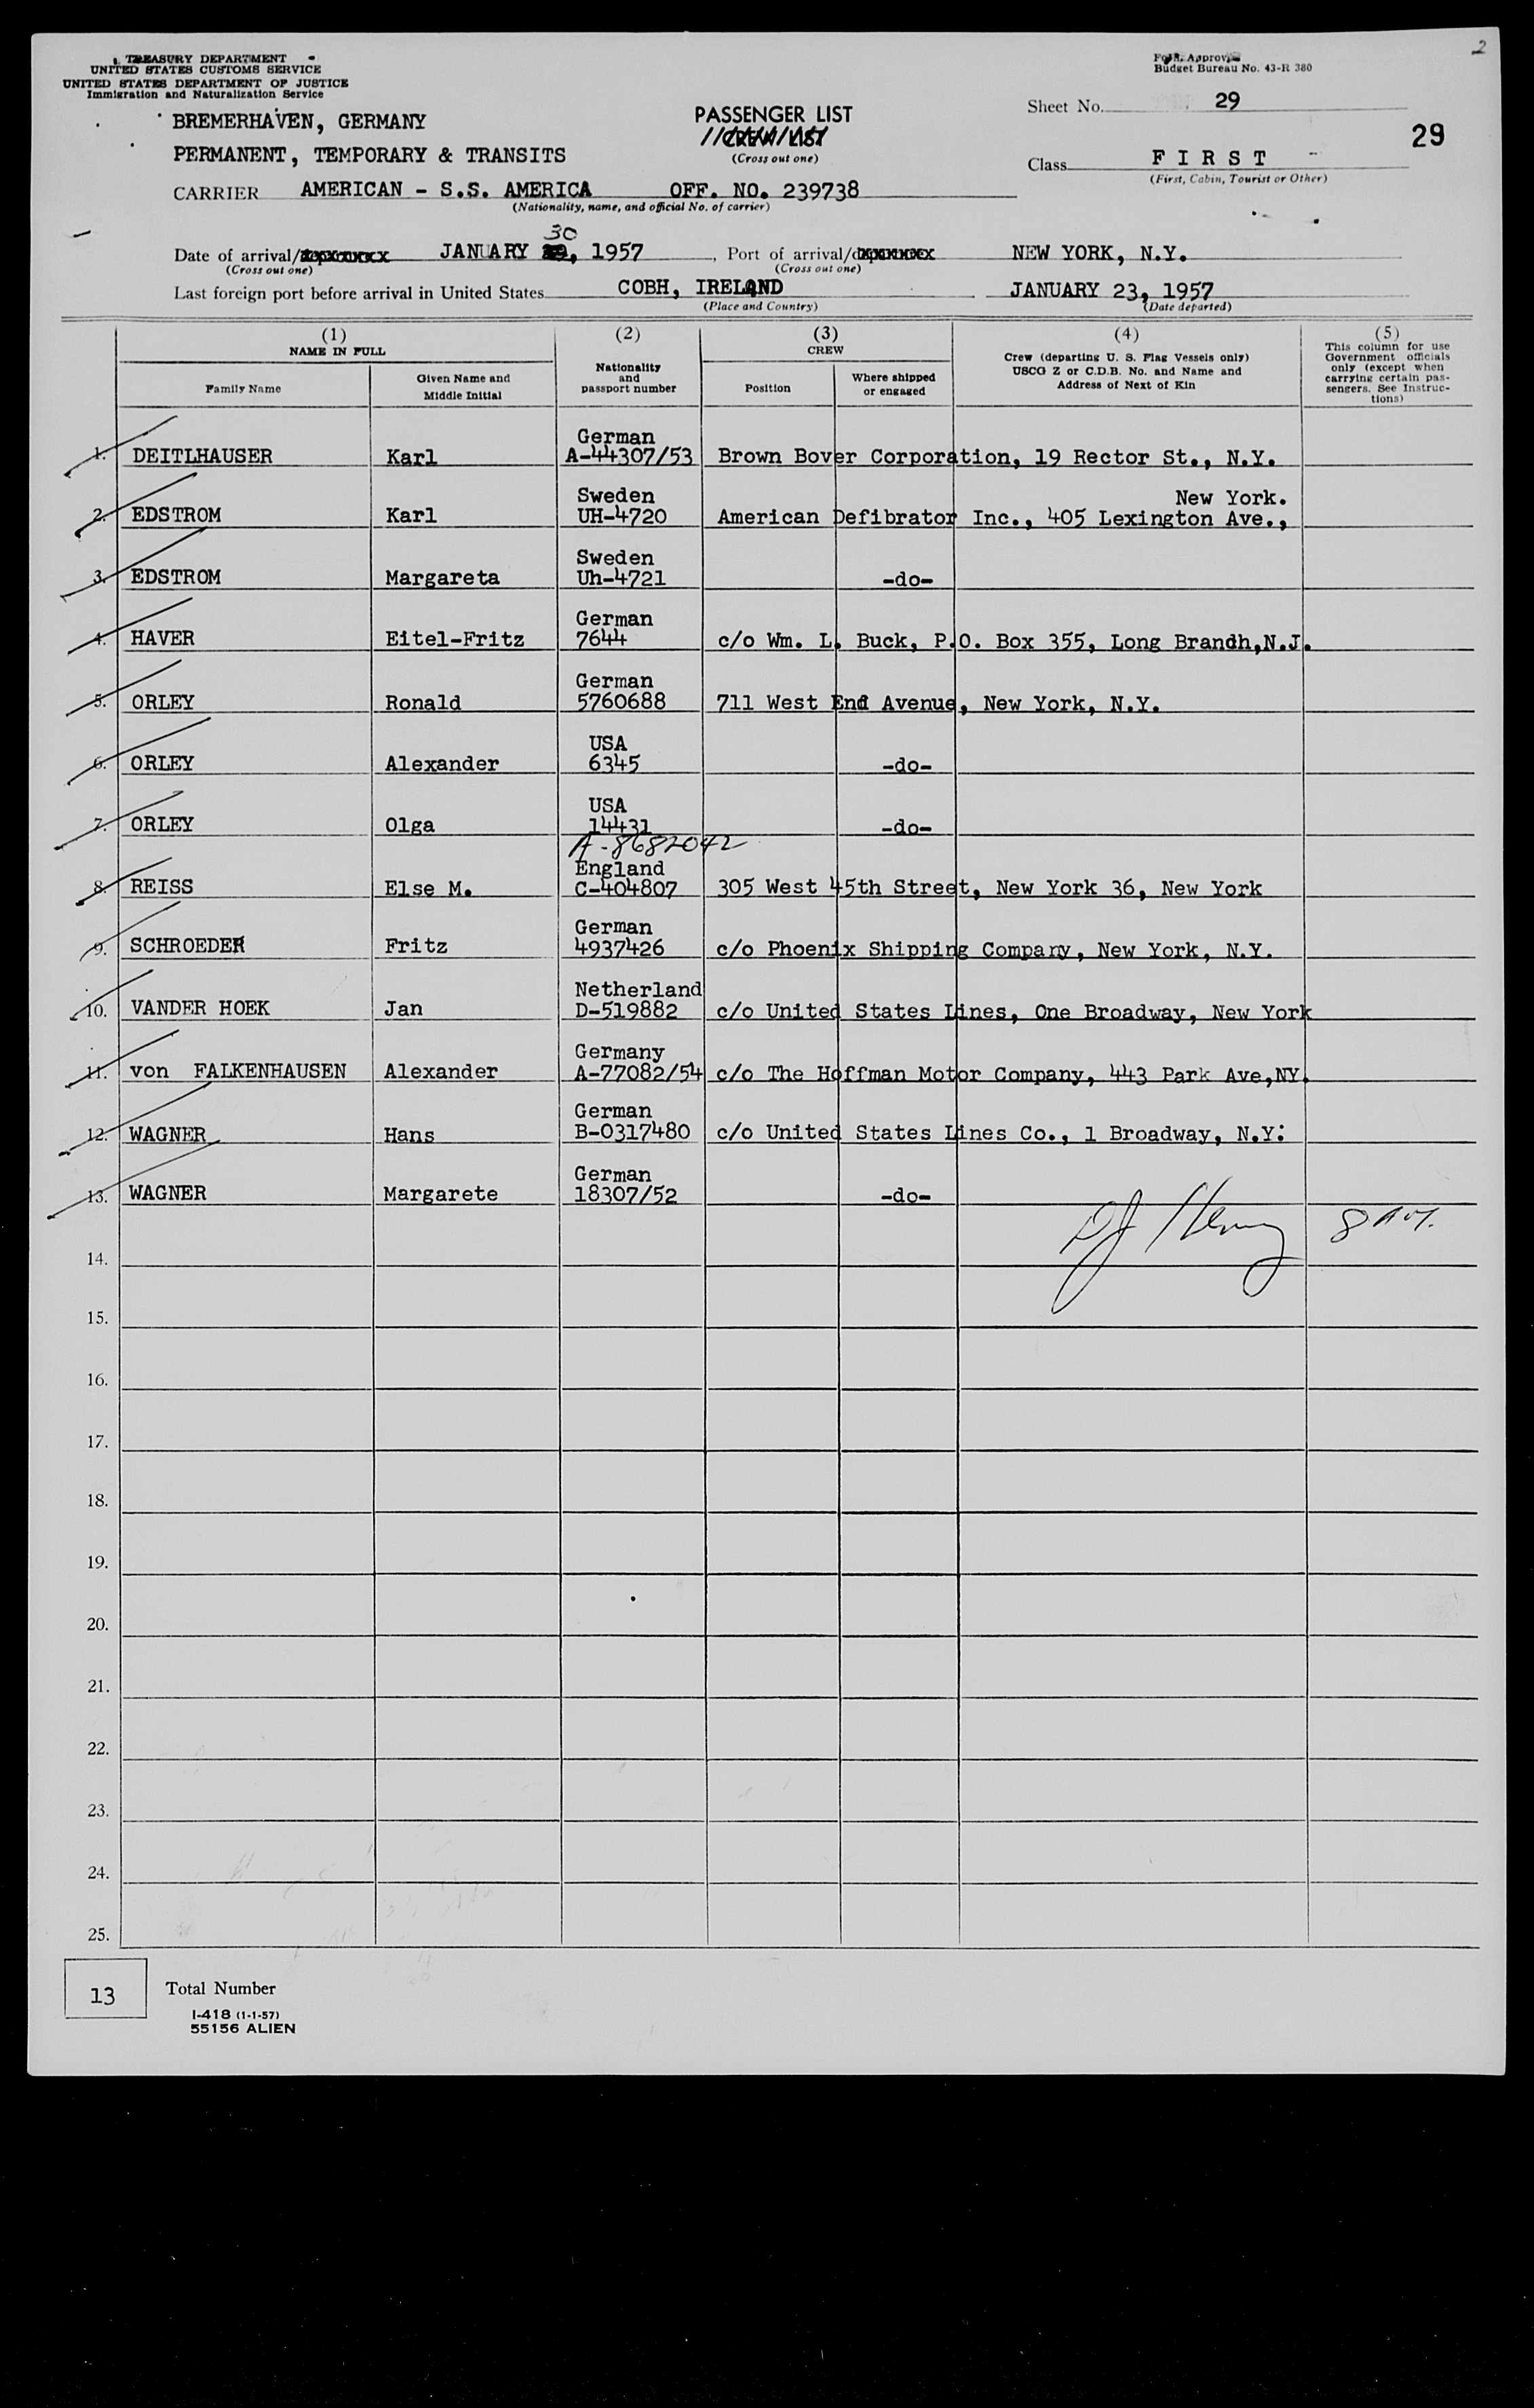 TREASURY DEPARTMENT
UNITED STATES CUSTOMS SERVICE
UNITED STATES DEPARTMENT OF JUSTICE
Immigration and Naturalization Service
2
Budget Bureau No. 43-R 380
BREMERHAVEN, GERMANY
PERMANENT, TEMPORARY & TRANSITS
PASSENGER LIST
CREW LIST
(Cross out one)
Sheet No. 29
29
Class FIRST
(First, Cabin, Tourist or Other)
CARRIER AMERICAN - S.S. AMERICA OFF. NO. 239738
(Nationality, name, and official No. of carrier)
30
Date of arrival/ JANUARY 29, 1957, Port of arrival/ NEW YORK, N.Y.
(Cross out one) (Cross out one)
Last foreign port before arrival in United States COBH, IRELAND JANUARY 23, 1957
(Place and Country) (Date departed)
(1) (2) (3) (4) (5)
NAME IN FULL
Family Name
Given Name and
Middle Initial
Nationality
and
passport number
CREW
Position
Where shipped
or engaged
Crew (departing U. S. Flag Vessels only)
USCG Z or C.D.B. No. and Name and
Address of Next of Kin
This column for use
Government officials
only (except when
carrying certain pas-
sengers. See Instruc-
tions)
German
1. DEITLHAUSER Karl A-44307/53 Brown Bover Corporation, 19 Rector St., N.Y.
Sweden New York.
2. EDSTROM Karl UH-4720 American Defibrator Inc., 405 Lexington Ave.,
Sweden
3. EDSTROM Margareta Uh-4721 -do-
German
4. HAVER Eitel-Fritz 7644 c/o Wm. L. Buck, P.O. Box 355, Long Brandh,N.J.
German
5. ORLEY Ronald 5760688 711 West End Avenue, New York, N.Y.
USA
6. ORLEY Alexander 6345 -do-
USA
7. ORLEY Olga 14431 -do-
A-8682042
England
8. REISS Else M. C-404807 305 West 45th Street, New York 36, New York
German
9. SCHROEDER Fritz 4937426 c/o Phoenix Shipping Company, New York, N.Y.
Netherland
10. VANDER HOEK Jan D-519882 c/o United States Lines, One Broadway, New York
Germany
11. von FALKENHAUSEN Alexander A-77082/54 c/o The Hoffman Motor Company, 443 Park Ave,NY.
German
12. WAGNER Hans B-0317480 c/o United States Lines Co., 1 Broadway, N.Y.
German
13. WAGNER Margarete 18307/52 -do-
14.
15.
16.
17.
18.
19.
20.
21.
22.
23.
24.
25.
13 Total Number
I-418 (1-1-57)
55156 ALIEN